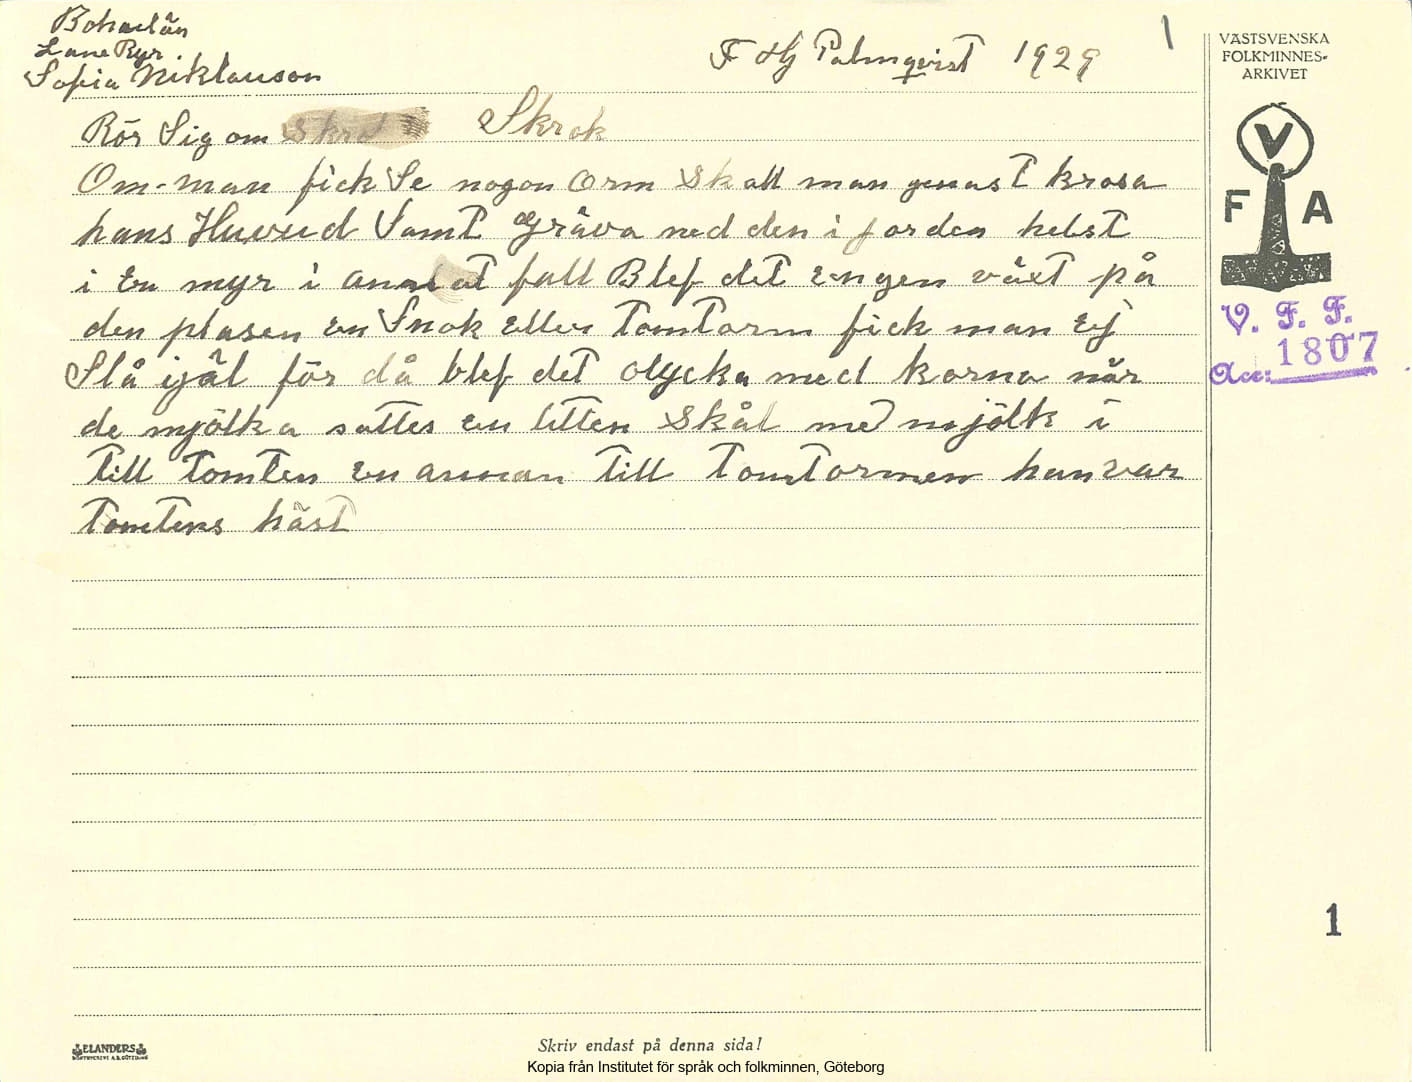 Bohuslän
Lane Ryr
Sofia Niklasson
F Hj Palmqvist 1929
1
VÄSTSVENSKA
FOLKMINNES-
ARKIVET
V
F A
V. F. F.
Acc: 1807
Rör Sig om Skrok
Om-man fick Se nogon Orm Skall man genast krosa
hans Huvud Samt Gräva ned den i jorden helst
i En myr i annat fall Blef det Engen växt på
den plasen En Snok Eller Tomtorm fick man Ej
Slå ijäl för då blef det olycka med korna när
de mjölka sattes En liten Skål med mjölk i
Till Tomten En annan Till Tomtormen han var
Tomtens häst
1
ELANDERS
Skriv endast på denna sida!
Kopia från Institutet för språk och folkminnen, Göteborg